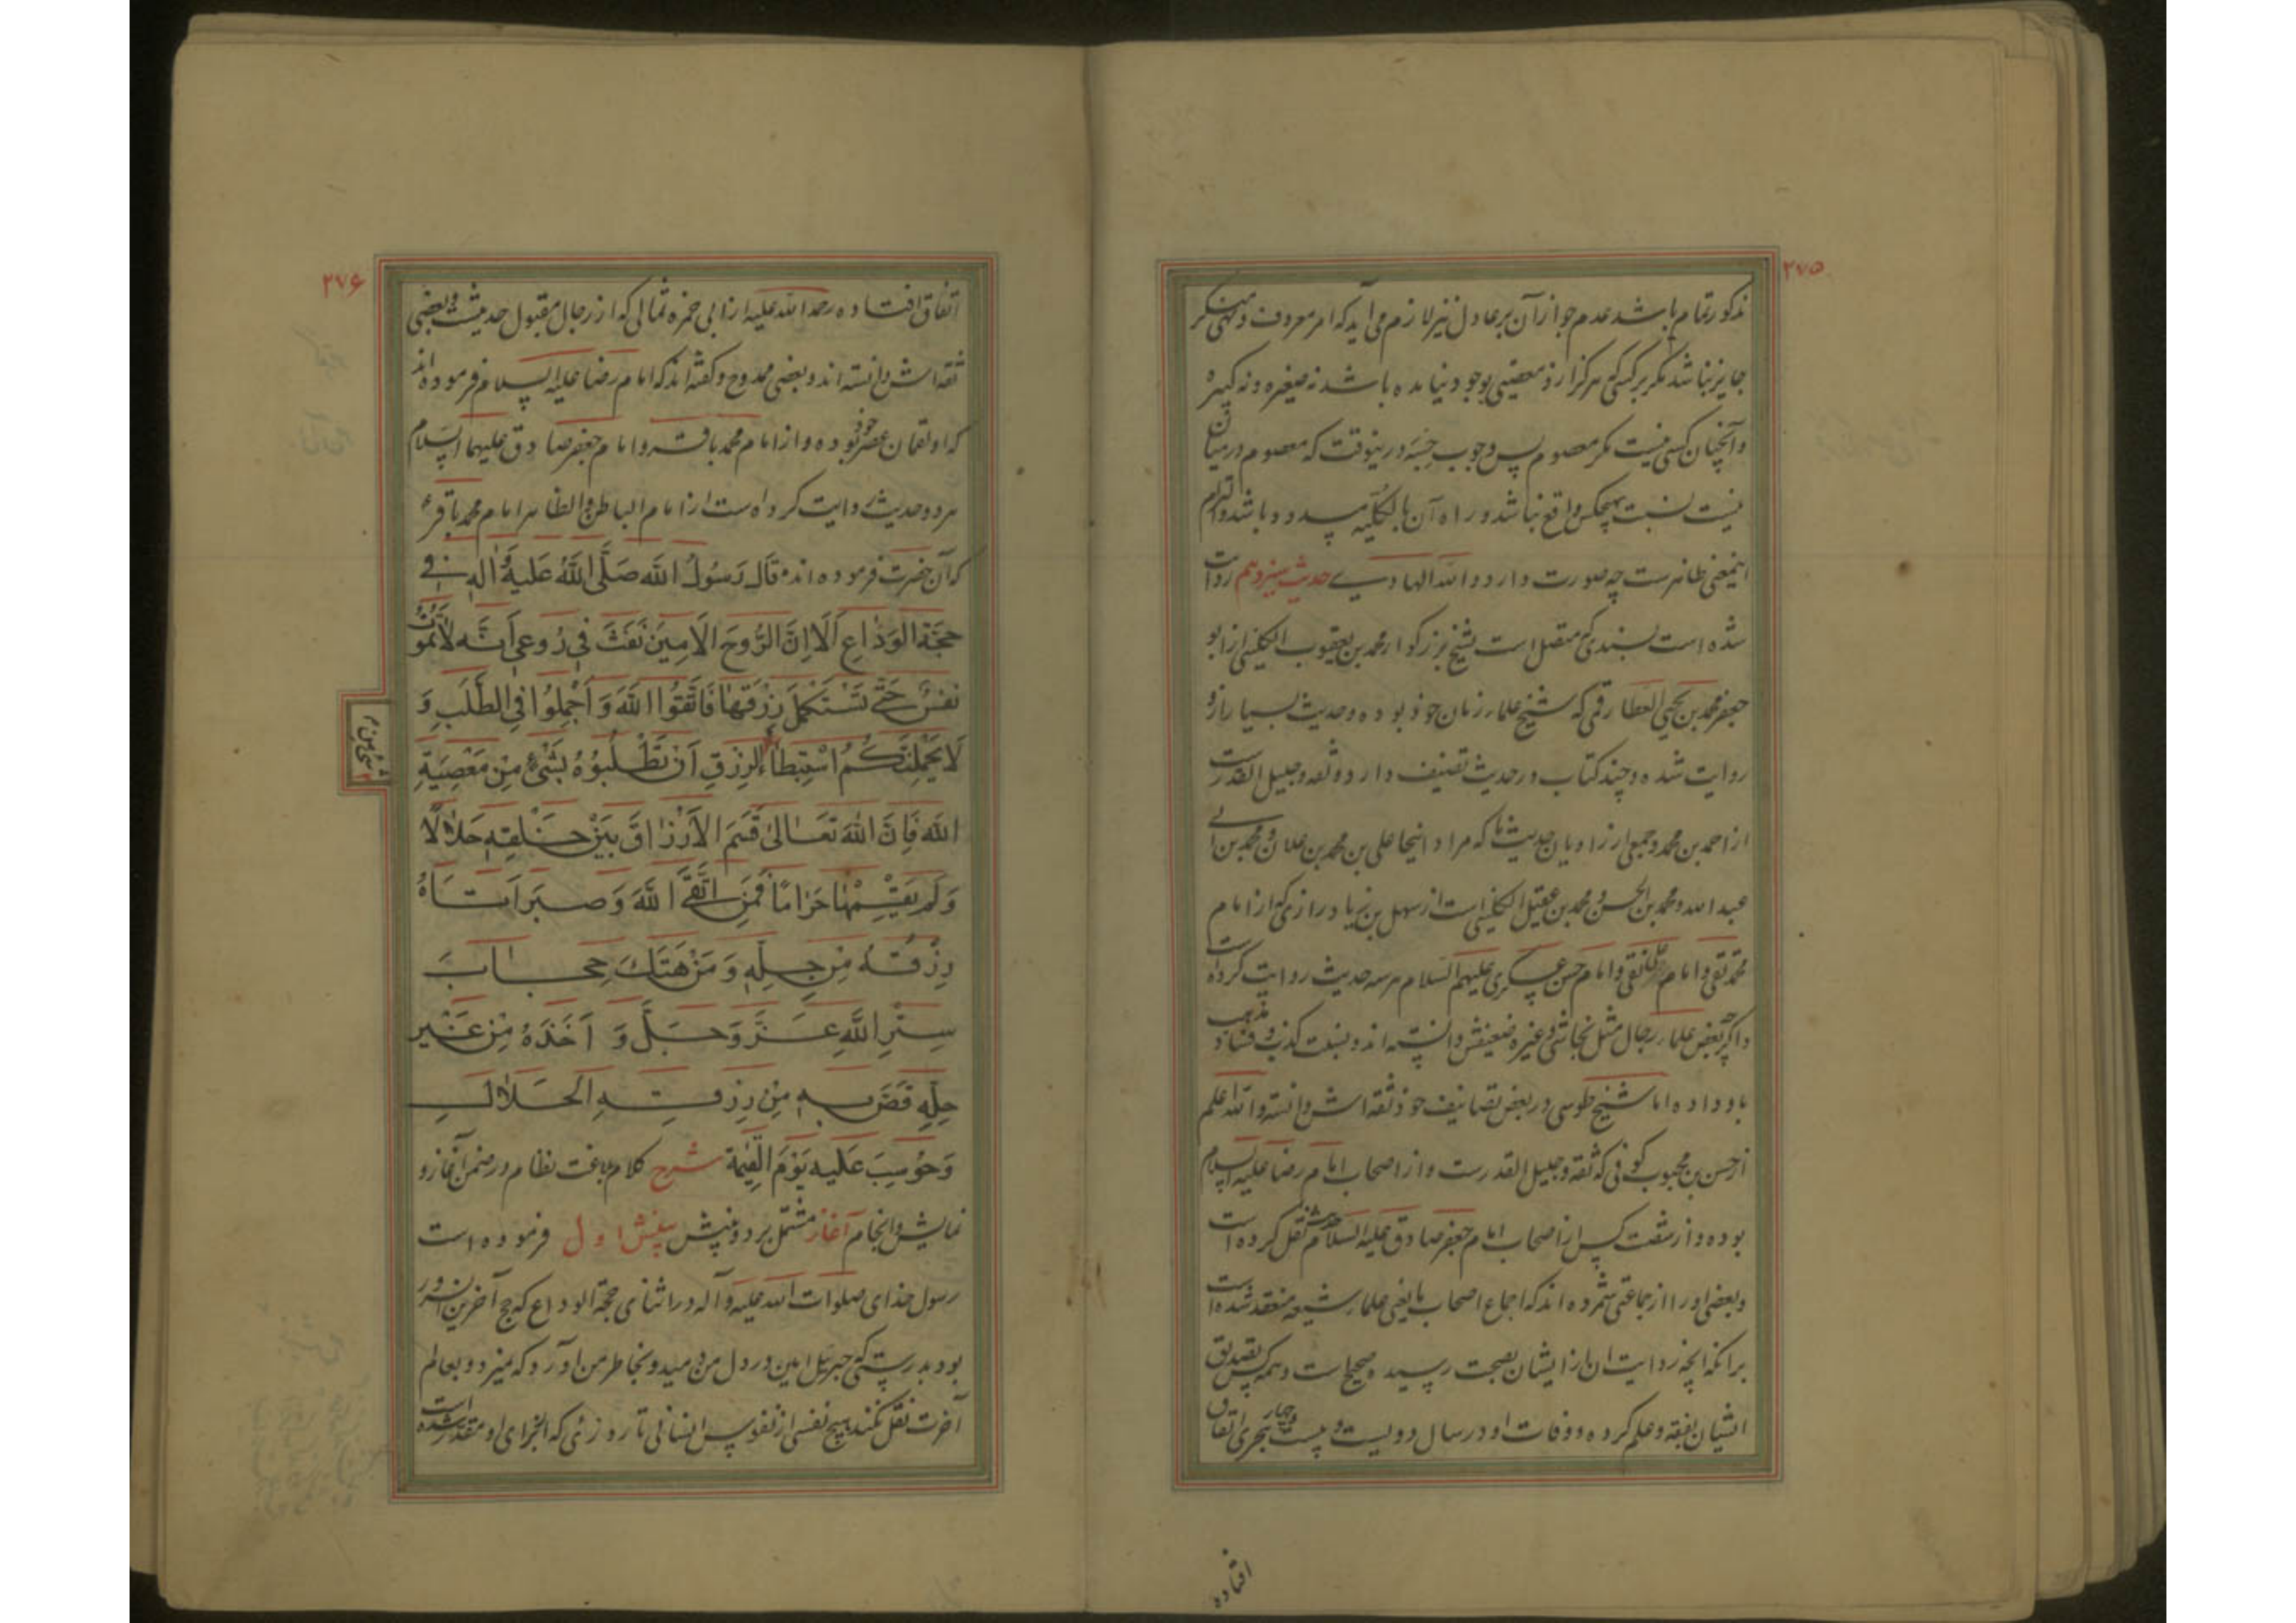 ۲۷۵
مذکور تمام باشد عدم جواز آن بر عادل نیز لازم می آید که امر معروف و نهی منکر
جایز نباشد مگر بر کسی که هرگز ازو معصیتی بوجود نیامده باشد نه صغیره و نه کبیره
و آنچنان کسی نیست مگر معصوم پس وجوب حِسْبَه درینوقت که معصوم در میان
نیست نسبت بهیچکس واقع نباشد و راه آن بالکُلّیه مسدود باشد و التزام
اینمعنی ظاهرست چه صورت دارد و الله الهادی حدیث سیزدهم روایت
شده است بسندی که متصل است بشیخ بزرگوار محمد بن یعقوب الکلینی از ابو
جعفر محمد بن یحیی العطار قمی که شیخ علماء زمان خود بوده و حدیث بسیار ازو
روایت شده و چند کتاب در حدیث تصنیف دارد و ثقه و جلیل القدرست
از احمد بن محمد و جمعی از راویان حدیث ما که مراد اینجا علی بن محمد بن علان و محمد بن ابی
عبد الله و محمد بن الحسن و محمد بن عقیل الکلینی است از سهل بن زیاد رازی که از امام
محمد تقی و امام علی نقی و امام حسن عسکری علیهم السلام هر سه حدیث روایت کرده است
و اگرچه بعض علماء رجال مثل نجاشی و غیره ضعیفش دانسته اند و نسبت کذب و فساد مذهب
باو داده اما شیخ طوسی در بعض تصانیف خود ثقه اش دانسته و الله اعلم
از حسن بن محبوب کوفی که ثقه و جلیل القدرست و از اصحاب امام رضا علیه السلام
بوده و از شصت کس از اصحاب امام جعفر صادق علیه السلام حدیث نقل کرده است
و بعضی او را از جماعتی شمرده اند که اجماع اصحاب ما یعنی علماء شیعه منعقد شده است
برانکه آنچه روایت ان از ایشان بصحت رسید صحیح است و همه کس تصدیق
ایشان بفقه و علم کرده و وفات او در سال دویست و بیست و چهار هجری اتفاق
افتاده
۲۷۶
اتفاق افتاده رحمة الله علیه از ابی حمزه ثمالی که از رجال مقبول حدیث و بعضی
ثقه اش دانسته اند و بعضی ممدوح و گفته اند که امام رضا علیه السلام فرموده اند
که او لقمان عصر خود بوده و از امام محمد باقر و امام جعفر صادق علیهما السلام
هر دو حدیث روایت کرده است از امام الباطن و الظاهر امام محمد باقر ع
که آن حضرت فرموده اند قَالَ رَسُولُ الله صَلَّی اللهُ عَلیهِ وَاٰلهٖ فی
حجَّةِ الوَدَاعِ اَلَا اِنَّ الرُّوحَ الاَمِینَ نَفَثَ فی رُوعی اَنَّه لَاتَمُوتُ
نَفسٌ حَتّٰی تَسْتَکمِلَ رِزْقَهَا فَاتَّقُوا اللهَ وَ اَجْمِلُوا فِی الطَّلَبِ وَ
لَا یَحْمِلَنَّکُمُ اسْتِبْطاءُ الرِزقِ اَن تَطْلُبُوهُ بِشَیْءٍ مِن مَعْصِیَةِ
اللهِ فَاِنَّ اللهَ تَعَالیٰ قَسَمَ الاَرْزاقَ بَینَ خَلقِهٖ حَلَالًا
وَلَم یَقسِمْهَا حَرَامًا فَمَنِ اتَّقَی اللهَ وَ صَبَرَ اَتَاهُ
رِزْقُهُ مِن حِلِّهٖ وَ مَنْ هَتَکَ حِجَابَ
سِتْرِ اللهِ عَزَّ وَجَلَّ وَ اَخَذَهُ مِن غَیْرِ
حِلِّهِ قُصَّ بِهٖ مِن رِزقِهِ الحَلَالِ
وَحُوسِبَ عَلیهِ یَوْمَ القِیٰمَةِ شرح کلام بلاغت نظام در ضمن آغاز و
نمایش و انجام آغاز مشتمل بر دو بینش بینش اول فرموده است
رسول خدای صلوات الله علیه و آله در اثنای حجة الوداع که حج آخرین آن سرور
بود بدرستی که جبرئیل امین در دل من دمید و بخاطر من آورد که نمیرد و بعالم
آخرت نقل نکند هیچ نفسی از نفوس انسانی تا روزئی که از برای او مقدر شده است